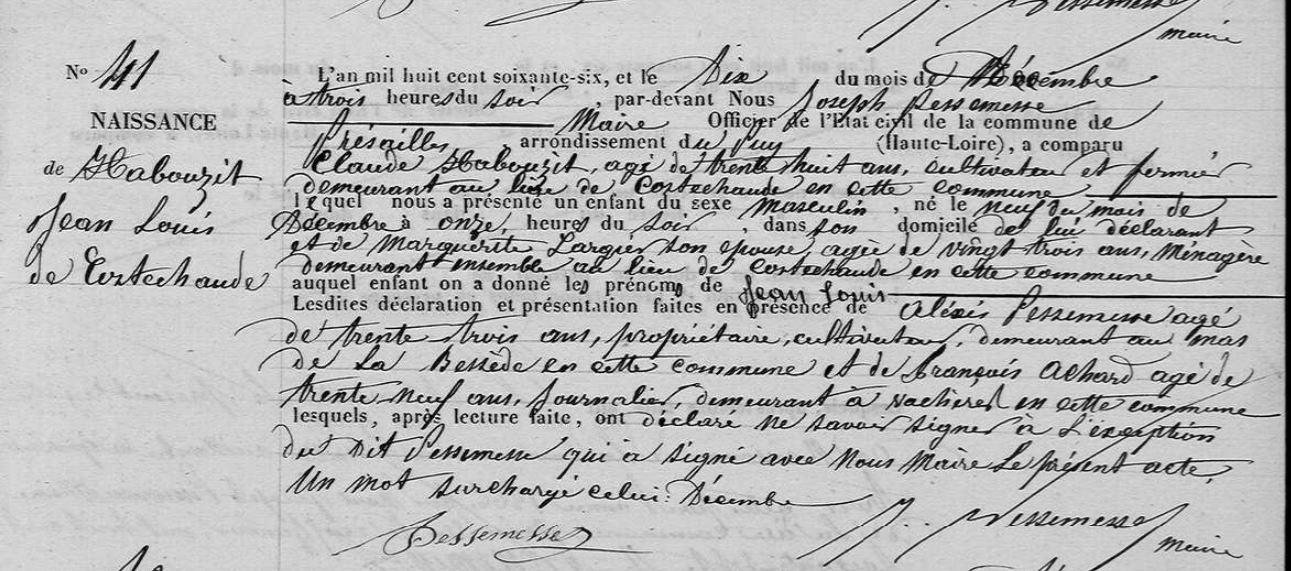 J. Pessemesse
maire
N° 41
NAISSANCE
de Habouzit
Jean Louis
de Costechaude
L'an mil huit cent soixante-six, et le Dix du mois de Décembre
à trois heures du soir, par-devant Nous Joseph Pessemesse
Maire Officier de l'Etat civil de la commune de
Présailles arrondissement du Puy (Haute-Loire), a comparu
Claude Habouzit, agé de trente huit ans, cultivateur et fermier
demeurant au lieu de Costechaude en cette commune
lequel nous a présenté un enfant du sexe masculin, né le neuf du mois de
Décembre à onze, heures du soir, dans son domicile de lui déclarant
et de Marguerite Largier son epouse agée de vingt trois ans, Ménagère
demeurant ensemble au lieu de Costechaude en cette commune
auquel enfant on a donné les prénoms de Jean Louis
Lesdites déclaration et présentation faites en présence de Aléxis Pessemesse agé
de trente trois ans, propriétaire, cultivateur, demeurant au mas
de La Bessède en cette commune et de François Achard agé de
trente neuf ans, journalier, demeurant à vacheres en cette commune
lesquels, après lecture faite, ont déclaré ne savoir signer à L'exception
du Dit Pessemesse qui à signé avec Nous Maire Le présent acte,
Un mot surchargé celui: Décembre
Pessemesse J. Pessemesse
maire